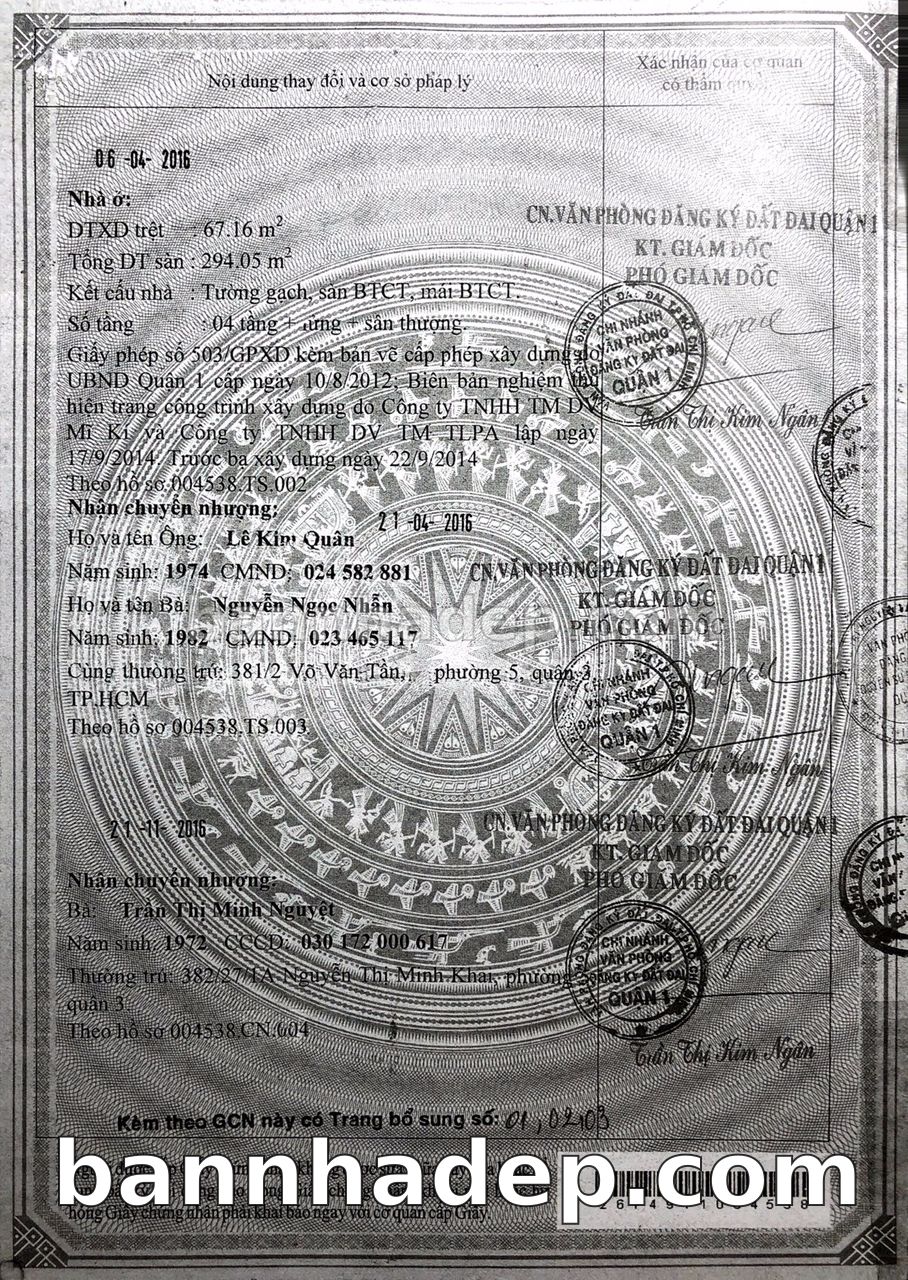 Nội dung thay đổi và cơ sở pháp lý
Xác nhận của cơ quan
có thẩm quyền
06 -04- 2016
Nhà ở:
DTXD trệt : 67.16 m²
Tổng DT sàn : 294.05 m²
Kết cấu nhà : Tường gạch, sàn BTCT, mái BTCT.
Số tầng : 04 tầng + lửng + sân thượng.
Giấy phép số 503/GPXD kèm bản vẽ cấp phép xây dựng do
UBND Quận 1 cấp ngày 10/8/2012; Biên bản nghiệm thu
hiện trạng công trình xây dựng do Công ty TNHH TM DV
Mĩ Kì và Công ty TNHH DV TM TLPA lập ngày
17/9/2014. Trước bạ xây dựng ngày 22/9/2014
Theo hồ sơ 004538.TS.002
CN.VĂN PHÒNG ĐĂNG KÝ ĐẤT ĐAI QUẬN 1
KT. GIÁM ĐỐC
PHÓ GIÁM ĐỐC
CHI NHÁNH
VĂN PHÒNG
ĐĂNG KÝ ĐẤT ĐAI
QUẬN 1
Trần Thị Kim Ngân
Nhận chuyển nhượng:
21 -04- 2016
Họ và tên Ông: Lê Kim Quân
Năm sinh: 1974 CMND: 024 582 881
Họ và tên Bà: Nguyễn Ngọc Nhẫn
Năm sinh: 1982 CMND: 023 465 117
Cùng thường trú: 381/2 Võ Văn Tần, phường 5, quận 3,
TP.HCM
Theo hồ sơ 004538.TS.003
CN.VĂN PHÒNG ĐĂNG KÝ ĐẤT ĐAI QUẬN 1
KT. GIÁM ĐỐC
PHÓ GIÁM ĐỐC
CHI NHÁNH
VĂN PHÒNG
ĐĂNG KÝ ĐẤT ĐAI
QUẬN 1
Trần Thị Kim Ngân
21 -11- 2016
Nhận chuyển nhượng:
Bà: Trần Thị Minh Nguyệt
Năm sinh: 1972 CCCD: 030 172 000 617
Thường trú: 382/27/1A Nguyễn Thị Minh Khai, phường
quận 3
Theo hồ sơ 004538.CN.004
CN.VĂN PHÒNG ĐĂNG KÝ ĐẤT ĐAI QUẬN 1
KT. GIÁM ĐỐC
PHÓ GIÁM ĐỐC
CHI NHÁNH
VĂN PHÒNG
ĐĂNG KÝ ĐẤT ĐAI
QUẬN 1
Trần Thị Kim Ngân
Kèm theo GCN này có Trang bổ sung số: 01, 02, 03
bannhadep.com
hỏng Giấy chứng nhận phải khai báo ngay với cơ quan cấp Giấy.